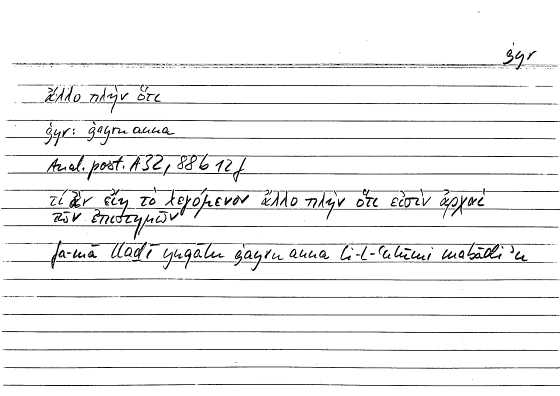 ġyr
ἄλλο πλὴν ὅτι
ġyr: ġayru anna
Anal. post. A32, 88b 12f
τί ἂν εἴη τὸ λεγόμενον ἄλλο πλὴν ὅτι εἰσὶν ἀρχαὶ
τῶν ἐπιστημῶν
fa-mā llaḏī yuqālu ġayru anna li-l-ʿulūmi mabādiʾu